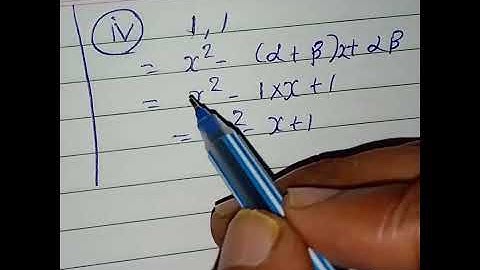 iv 1, 1
= x² - (α + β)x + αβ
= x² - 1×x + 1
= ² - x + 1